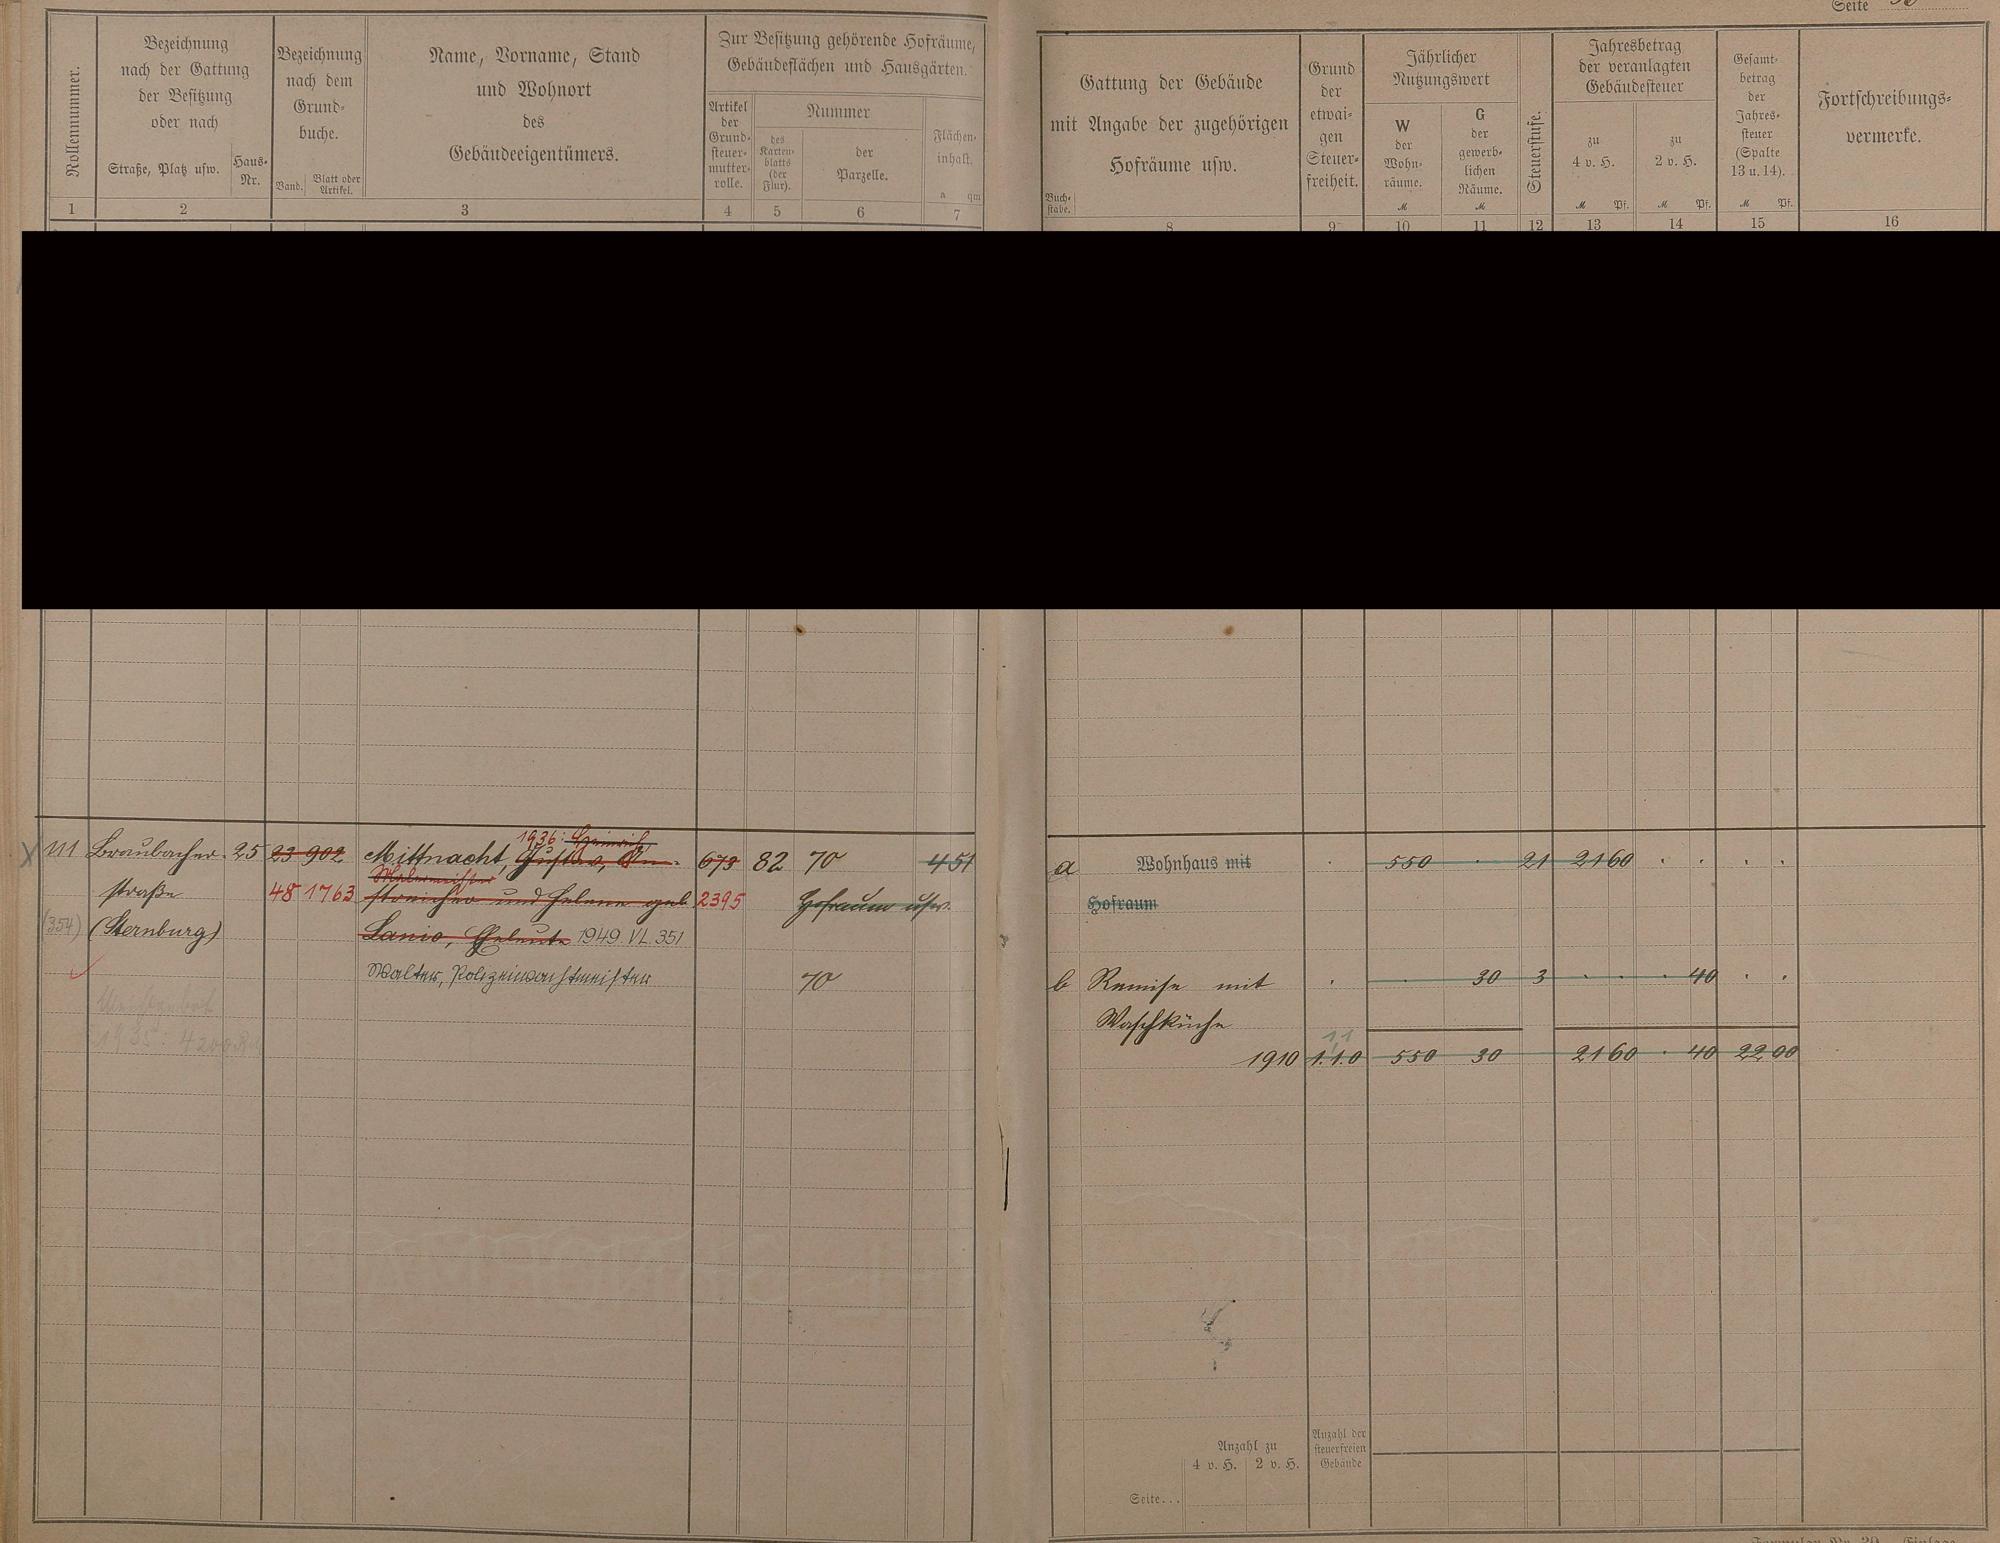 Seite
Rollennummer.
Bezeichnung
nach der Gattung
der Besitzung
oder nach
Straße, Platz usw.
Haus-
Nr.
Bezeichnung
nach dem
Grund-
buche.
Band.
Blatt oder
Artikel.
Name, Vorname, Stand
und Wohnort
des
Gebäudeeigentümers.
Zur Besitzung gehörende Hofräume,
Gebäudeflächen und Hausgärten.
Artikel
der
Grund-
steuer-
mutter-
rolle.
Nummer
des
Karten-
blatts
(der
Flur).
der
Parzelle.
Flächen-
inhalt.
a qm
1 2 3 4 5 6 7
Gattung der Gebäude
mit Angabe der zugehörigen
Hofräume usw.
Buch-
stabe.
Grund
der
etwai-
gen
Steuer-
freiheit.
Jährlicher
Nutzungswert
W
der
Wohn-
räume.
M
G
der
gewerb-
lichen
Räume.
M
Steuerstufe.
Jahresbetrag
der veranlagten
Gebäudesteuer
zu
4 v. H.
M Pf.
zu
2 v. H.
M Pf.
Gesamt-
betrag
der
Jahres-
steuer
(Spalte
13 u. 14).
M Pf.
Fortschreibungs-
vermerke.
8 9 10 11 12 13 14 15 16
1936: Heinrich,
Braubacher- 25 23 902 Mittnacht, Gustav, An- 673 82 70 451
Malermeister
straße 48 1763 streicher und Helene geb. 2395 Hofraum usw.
(354) (Sternburg) Lanio, Eheleute 1949. VI. 351
Walter, Polizeiwachtmeister 70
1935: 4200
a Wohnhaus mit 550 21 21 60
Hofraum
b Remise mit 30 3 40
Waschküche
1.1
1910 1.1.0 550 30 21 60 40 22 00
Anzahl zu
4 v. H. 2 v. H.
Anzahl der
steuerfreien
Gebäude
Seite...